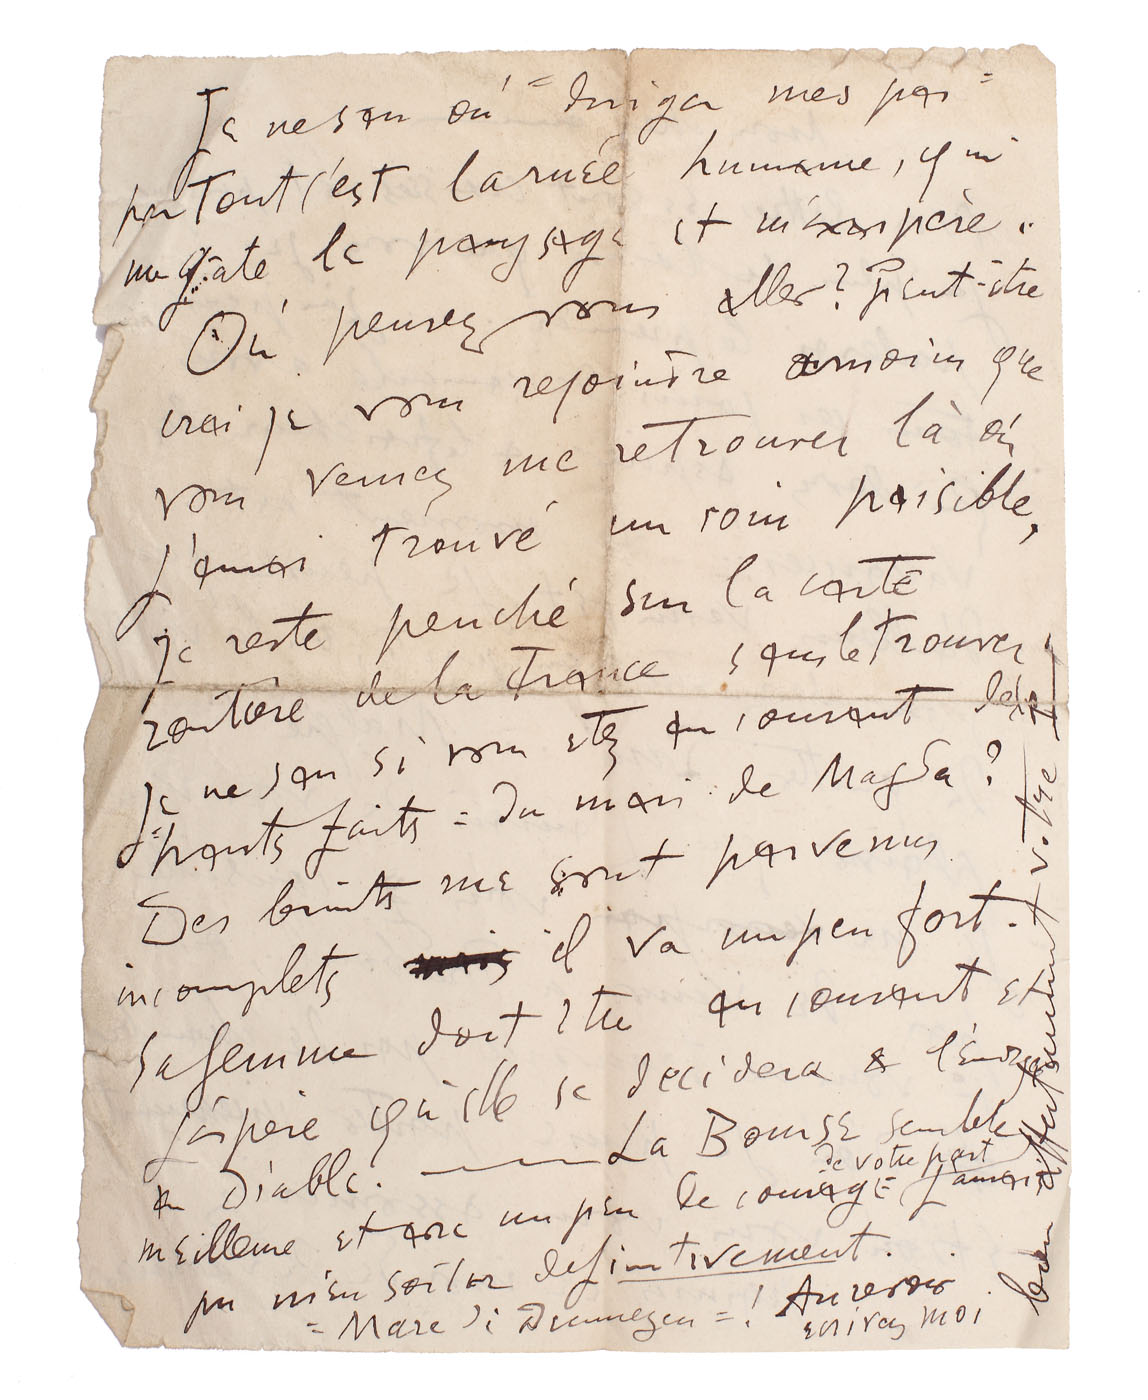 Je ne sais où "diriger mes pas"
partout c'est la ruée humaine, qui
me gâte le paysage et m'exaspère.
Où pensez vous aller? Peut-être
irai je vous rejoindre a moins que
vous veniez me retrouver là où
j'aurai trouvé un coin paisible,
je reste penché sur la carte
routière de la France sans le trouver.
Je ne sais si vous etes au courant des
"hauts faits" du mari de Magda?
Des bruits me sont parvenus
incomplets mais il va un peu fort.
Sa femme doit être au courant et
j'espère qu'elle se decidera a l'envoyer
au Diable. — La Bourse semble
meilleure et avec un peu de courage de votre part j'aurais
pu m'en sortir definitivement.
= Mare di =! Au revoir
ecrivez moi
bien affectueusement votre